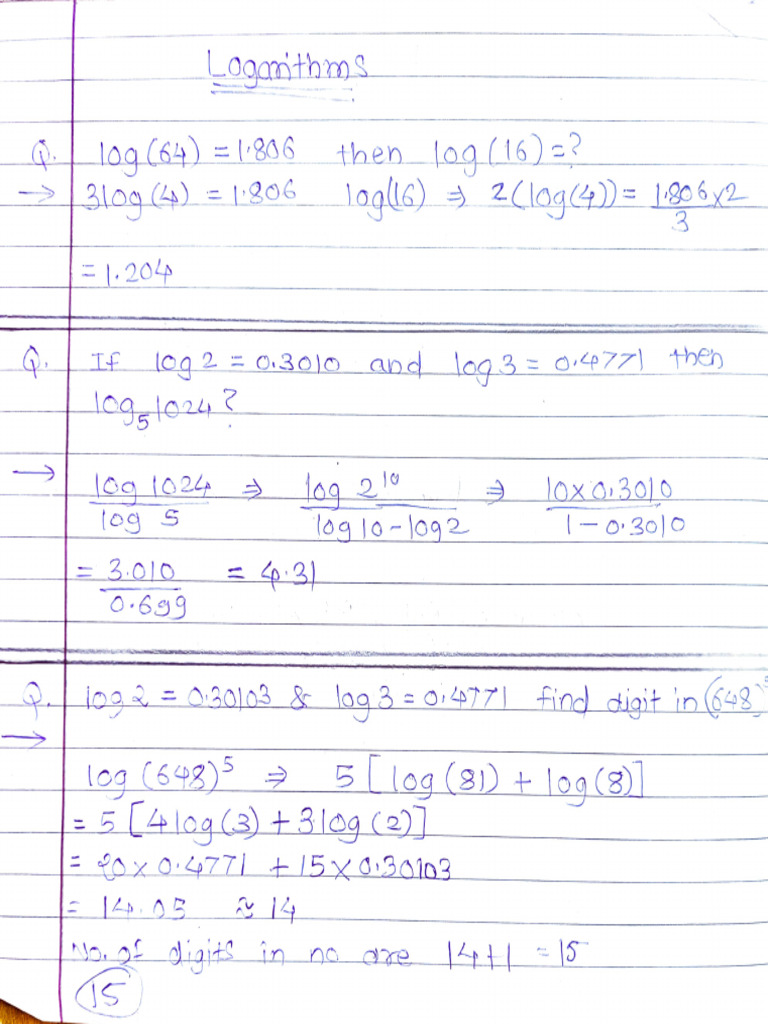 Logarithms
Q. log(64) = 1.806 then log(16) = ?
→ 3log(4) = 1.806 log(16) ⇒ 2(log(4)) = 1.806×2
3
= 1.204
Q. If log2 = 0.3010 and log3 = 0.4771 then
log₅1024?
→ log 1024 ⇒ log 2¹⁰ ⇒ 10×0.3010
log 5 log10-log2 1-0.3010
= 3.010 = 4.31
0.699
Q. log2 = 0.30103 & log3 = 0.4771 find digit in (648)⁵
→
log(648)⁵ ⇒ 5[log(81) + log(8)]
= 5[4log(3) + 3log(2)]
= 20×0.4771 + 15×0.30103
= 14.05 ≈ 14
No. of digits in no are 14+1 = 15
15